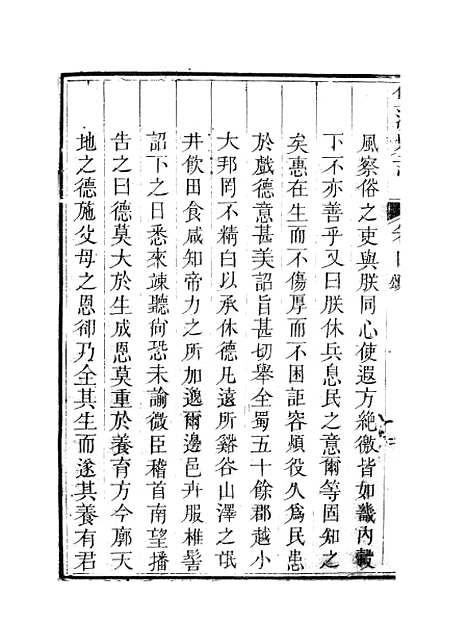 風察俗之吏與朕同心使遐方絶徼皆如畿内轂
下不亦善乎又曰朕休兵息民之意爾等固知之
矣惠在生而不傷厚而不困詎容頻役久爲民患
於戲德意甚美詔旨甚切舉全蜀五十餘郡越小
大邦罔不精白以承休德凡遠所谿谷山澤之氓
井飲田食咸知帝力之所加逸爾邊邑卉服椎髻
詔下之日悉來竦聽尚恐未諭微臣稽首南望播
告之曰德莫大於生成恩莫重於養育方今廓天
地之德施父母之恩卻乃全其生而遂其養有君